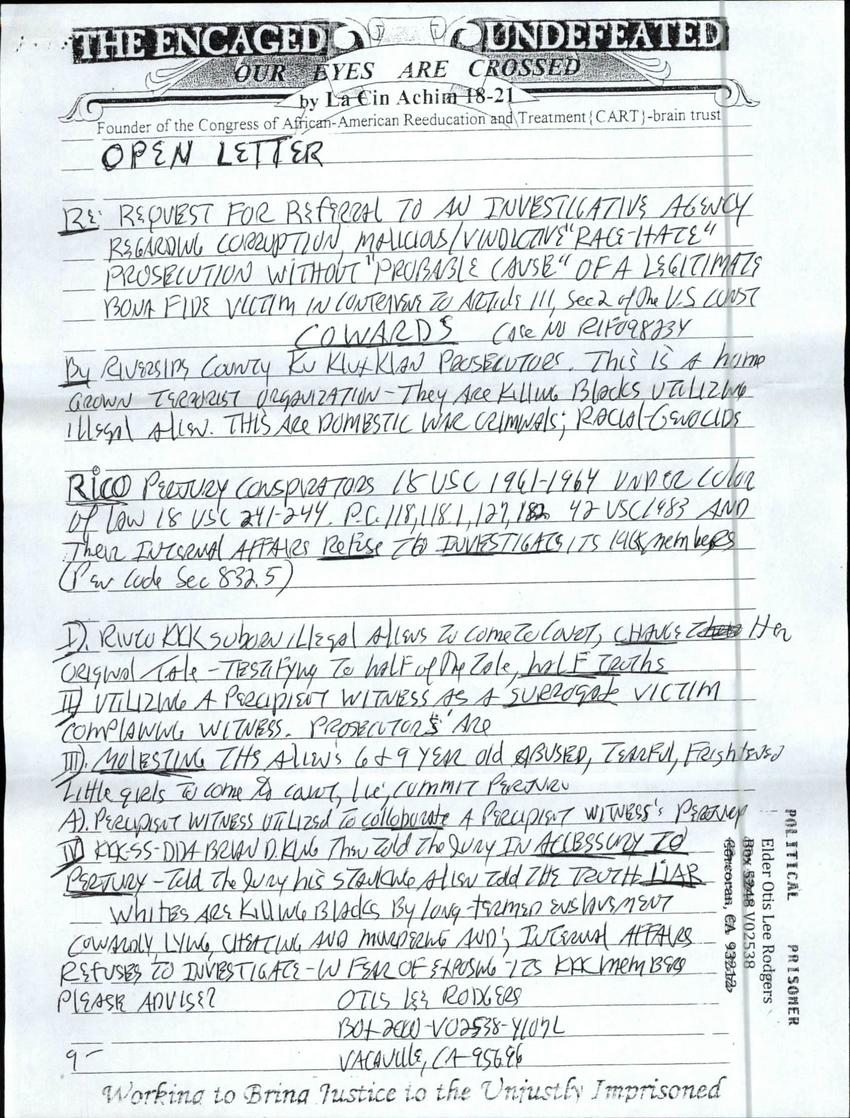 THE ENCAGED UNDEFEATED
OUR EYES ARE CROSSED
by La Cin Achim 18-21
Founder of the Congress of African-American Reeducation and Treatment{CART}-brain trust
OPEN LETTER
RE: REQUEST FOR REFERRAL TO AN INVESTIGATIVE AGENCY
REGARDING CORRUPTION, MALICIOUS/VINDICTIVE "RACE-HATE"
PROSECUTION WITHOUT "PROBABLE CAUSE" OF A LEGITIMATE
BONA FIDE VICTIM IN CONTRAVENE TO ARTICLE III, Sec 2 of the U.S CONST
COWARDS Case No RIF098234
By RIVERSIDE COUNTY KU KLUX KLAN PROSECUTORS. This is a home
GROWN TERRORIST ORGANIZATION - They ARE Killing Blacks UTILIZING
illegal Alien. THIS ARE DOMESTIC WAR CRIMINALS; RACIAL-GENOCIDE
RICO PERJURY CONSPIRATORS 18 USC 1961-1964 UNDER COLOR
of law 18 USC 241-244. P.C. 118, 118.1, 127, 182 42 USC 1983 AND
Their INTERNAL AFFAIRS Refuse To INVESTIGATE ITS KKK members
(Pen Code Sec 832.5)
I). RIVCO KKK suborn illegal Aliens to come to Court, CHANGE Her
ORIGINAL Tale - TESTIFYing To half of the Tale, half TRUTHS
II) UTILIZING A PERCIPIENT WITNESS AS A SURROGATE VICTIM
COMPLAINING WITNESS. PROSECUTOR'S ARE
III). MOLESTING THE Alien's 6 & 9 YEAR old ABUSED, TEARFUL, FRIGHTENED
Little girls To come to court, lie, commit PERJURY
A). PERCIPIENT WITNESS UTILIZED To collaborate A PERCIPIENT WITNESS'S PERJURY
IV) KKK-SS-DDA BRIAN D. KING Then Told the Jury IN ACCESSORY TO
PERJURY - Told the Jury his Alien Told THE TRUTH LIAR
WHITES ARE Killing Blacks By long-TERMED ENSLAVEMENT
COWARDLY LYING, CHEATING AND MURDERING AND; INTERNAL AFFAIRS
REFUSES TO INVESTIGATE - IN FEAR OF EXPOSING ITS KKK MEMBERS
PLEASE ADVISE?
OTIS LEE RODGERS
BOX 2000-V02538-Y107L
VACAVILLE, CA 95696
9-
Working to Bring Justice to the Unjustly Imprisoned
POLITICAL PRISONER
Elder Otis Lee Rodgers
Box 5248 V02538
Corcoran, CA 93212